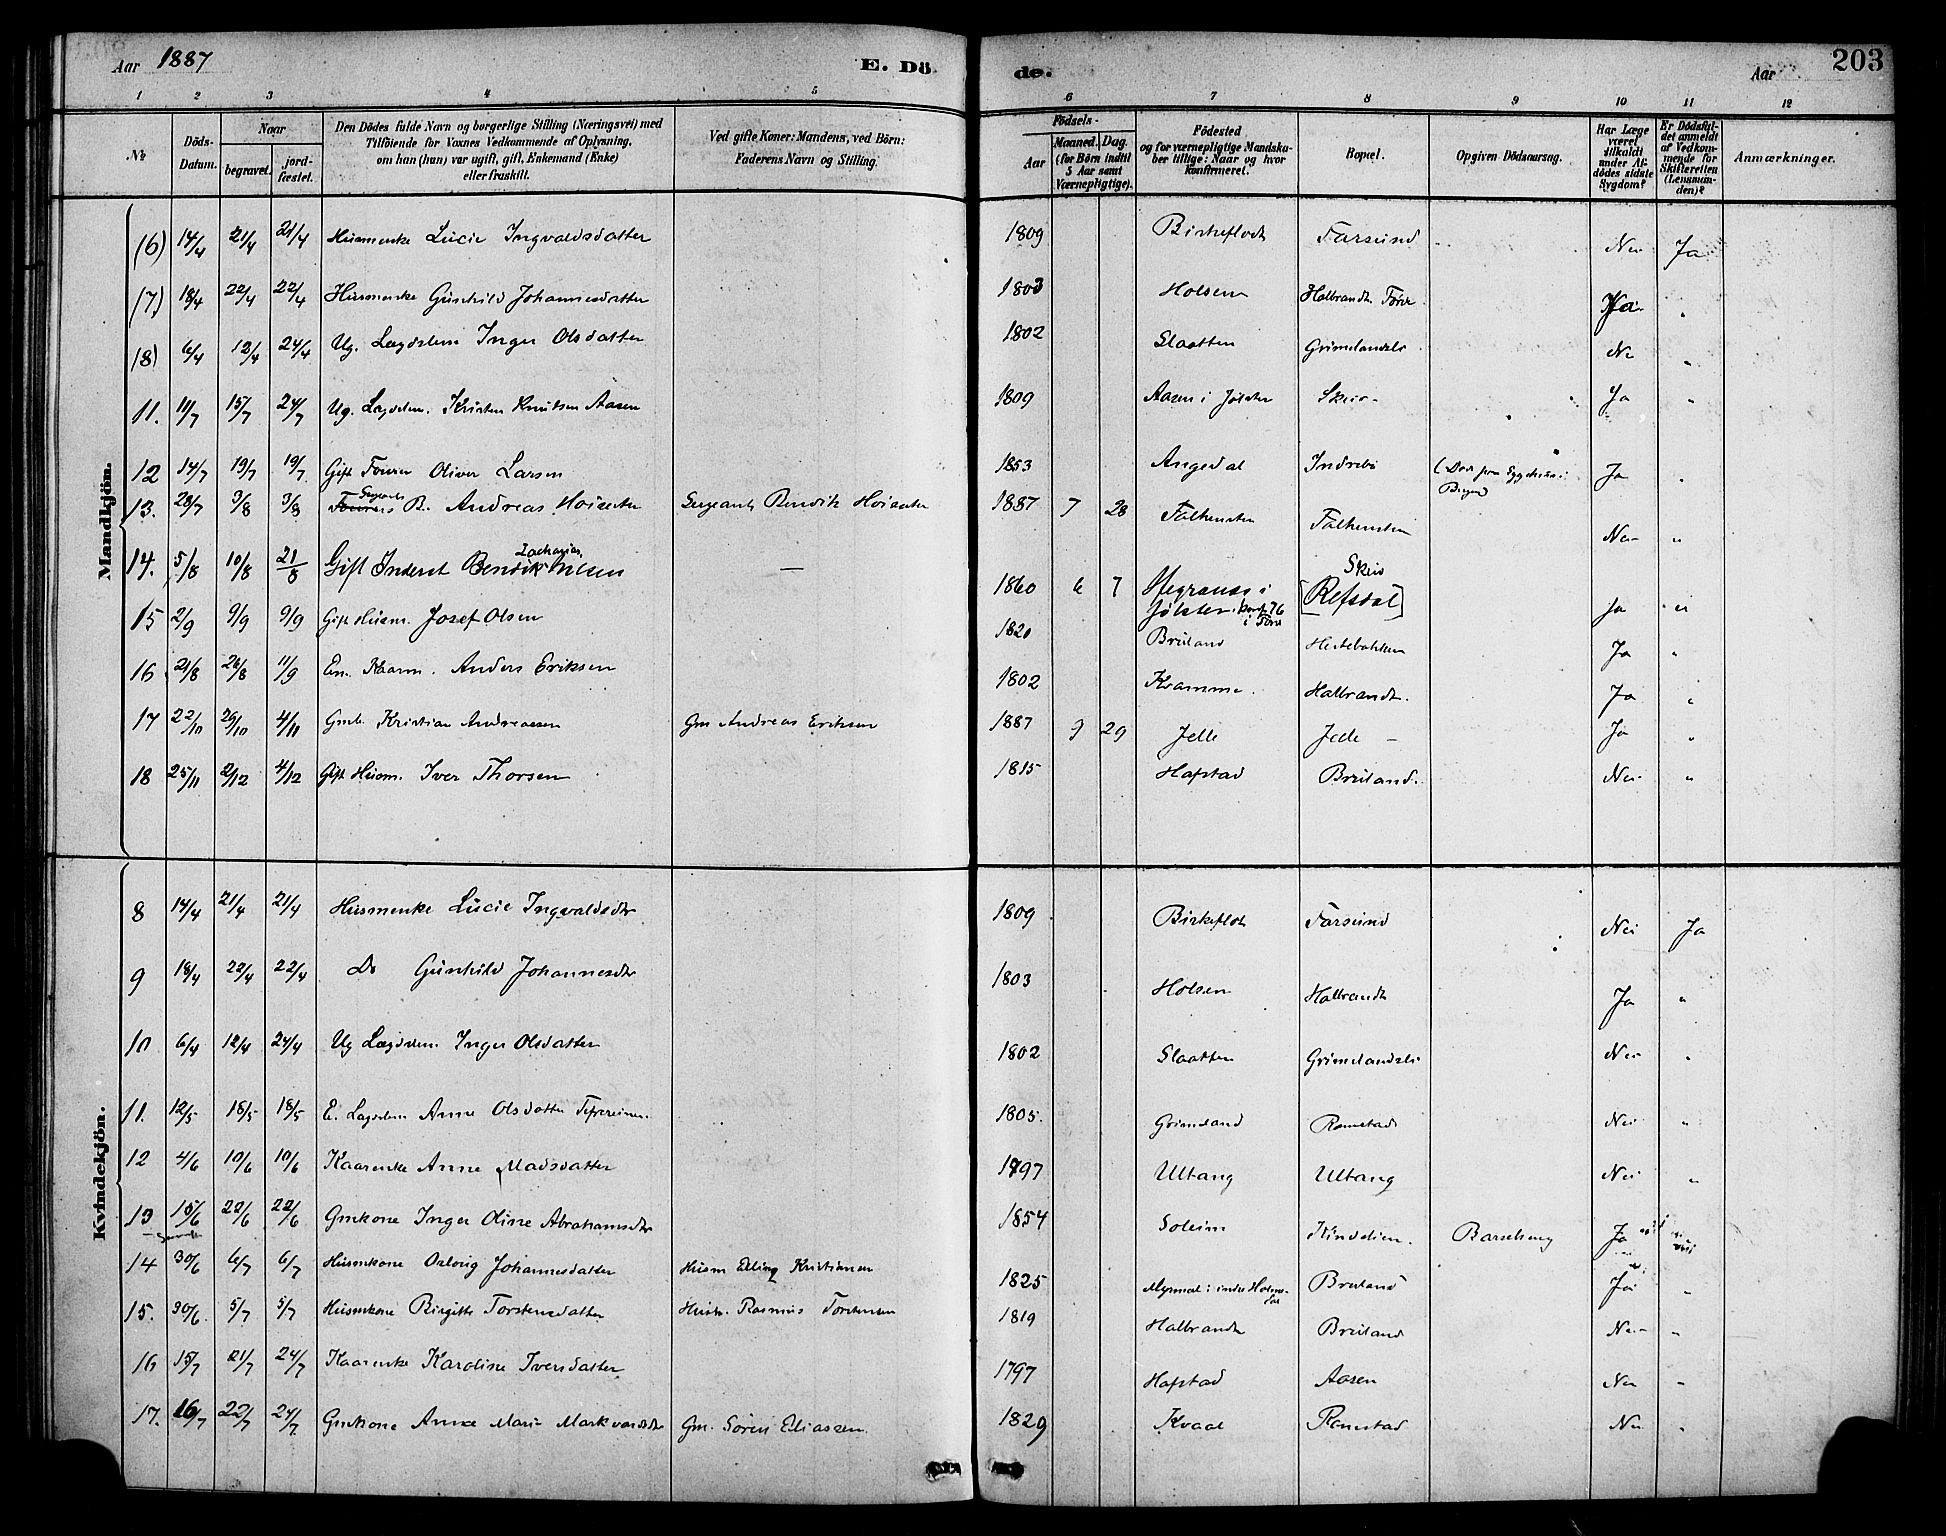 Aar 1887 E. Dö de. Aar 203
1 2 3 4 5 6 7 8 9 10 11 12
No Döds-Datum. Naar begravet. jord-fæstet. Den Dödes fulde Navn og borgerlige Stilling (Næringsvei) med Tilföiende for Voxnes Vedkommende af Oplysning, om han (hun) var ugift, gift, Enkemand (Enke) eller fraskilt. Ved gifte Koner: Mandens, ved Börn: Faderens Navn og Stilling. Födsels- Aar Maaned. Dag. (for Börn indtil 5 Aar samt Værnepligtige). Födested og for værnepligtige Mandskaber tillige: Naar og hvor konfirmeret. Bopæl. Opgiven Dödsaarsag. Har Læge været tilkaldt under Afdödes sidste Sygdom? Er Dödsfaldet anmeldt af Vedkommende for Skifteretten (Lensmanden)? Anmærkninger.
Mandkjön.
(6) 14/4 21/4 21/4 Husmenke Lucie Ingvaldsdatter 1809 Birkeflot Farsund Nei Ja
(7) 18/4 22/4 22/4 Husmenke Gunhild Johannesdatter 1803 Holsen Halbrandt Förde Ja "
(8) 6/4 12/4 24/4 Ug. Lægdslem Inger Olsdatter 1802 Slaatten Grimelandsli Nei "
11. 11/7 15/7 24/7 Ug. Lægdslem. Kristen Knutsen Aasen 1809 Aasen i Jölster Skei Ja "
12 14/7 19/7 19/7 Gift Fourer Oliver Larsen 1853 Angedal Indrebö Ja "
13. 28/7 3/8 3/8 Sergeants B. Andreas Höisæter Sergeant Bendik Höisæter 1887 7 28 Falkensten Falkensten Nei "
14. 5/8 10/8 21/8 Gift Inderst Bendik Zacharias Nilsen — 1860 6 7 Jölster konf. 76 i Förde Skei [Refsdal] Ja "
15 2/9 9/9 9/9 Gift Husm. Josef Olsen 1820 Bruland Hestebakken Ja "
16 21/8 26/8 11/9 En. Kaarm. Anders Eriksen 1802 Kramme. Halbrandt. Ja "
17 22/10 26/10 4/11 Gmb. Kristian Andreassen Gm Andreas Eriksen 1887 9 29 Jelle Jelle — Ja "
18 25/11 2/12 4/12 Gift Husm. Iver Thorsen 1815 Hafstad Bruland. Nei "
Kvindekjön.
8 14/4 21/4 21/4 Husmenke Lucie Ingvaldsdtr 1809 Birkeflot Farsund Nei Ja
9 18/4 22/4 22/4 Do Gunhild Johannesdtr 1803 Holsen Halbrandt Ja "
10 6/4 12/4 24/4 Ug Lægdslem Inger Olsdatter 1802 Slaatten Grimelandsli Nei "
11. 12/5 18/5 18/5 E. Lægdslem Anne Olsdatter 1805. Grimeland Ramstad Nei "
12 4/6 10/6 10/6 Kaarenke Anne Madsdatter 1797 Ultang Ultang Nei "
13 15/6 22/6 22/6 Gmkone Inger Oline Abrahamsdtr 1854 Soleim Kindelien. Barselseng Ja
14 30/6 6/7 6/7 Husmkone Oslaug Johannesdatter Husm Elling Kristiansen 1825 Myrmel i indre Holmedal Bruland Ja "
15. 30/6. 5/7 5/7 Husmkone Birgitte Torstensdatter Husm. Rasmus Torstensen 1819 Halbrandt Bruland Nei "
16 15/7 21/7 24/7 Kaarenke Karoline Iversdatter 1797 Hafstad Aasen Nei "
17. 16/7 22/7 24/7. Gmkone Anna Marie Markvardsdtr Gm. Sören Eliassen. 1829 Kvaal Ramstad Nei "